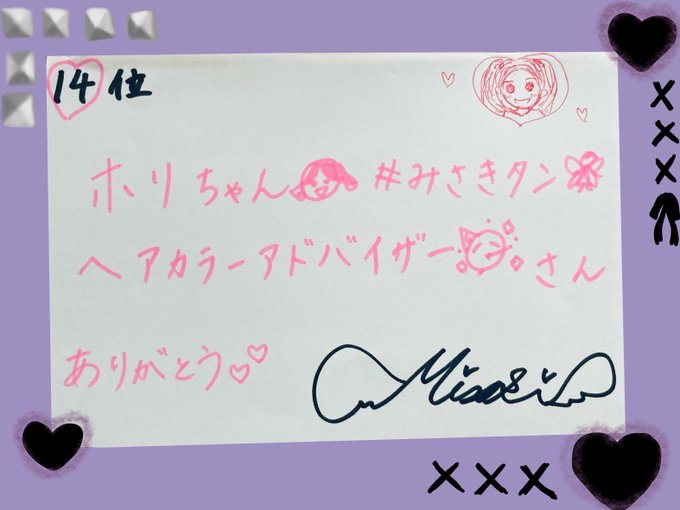 14位
ホリちゃん #みさきタン
ヘアカラーアドバイザー さん
ありがとう♡♡
Misaki
×
×
×
×××